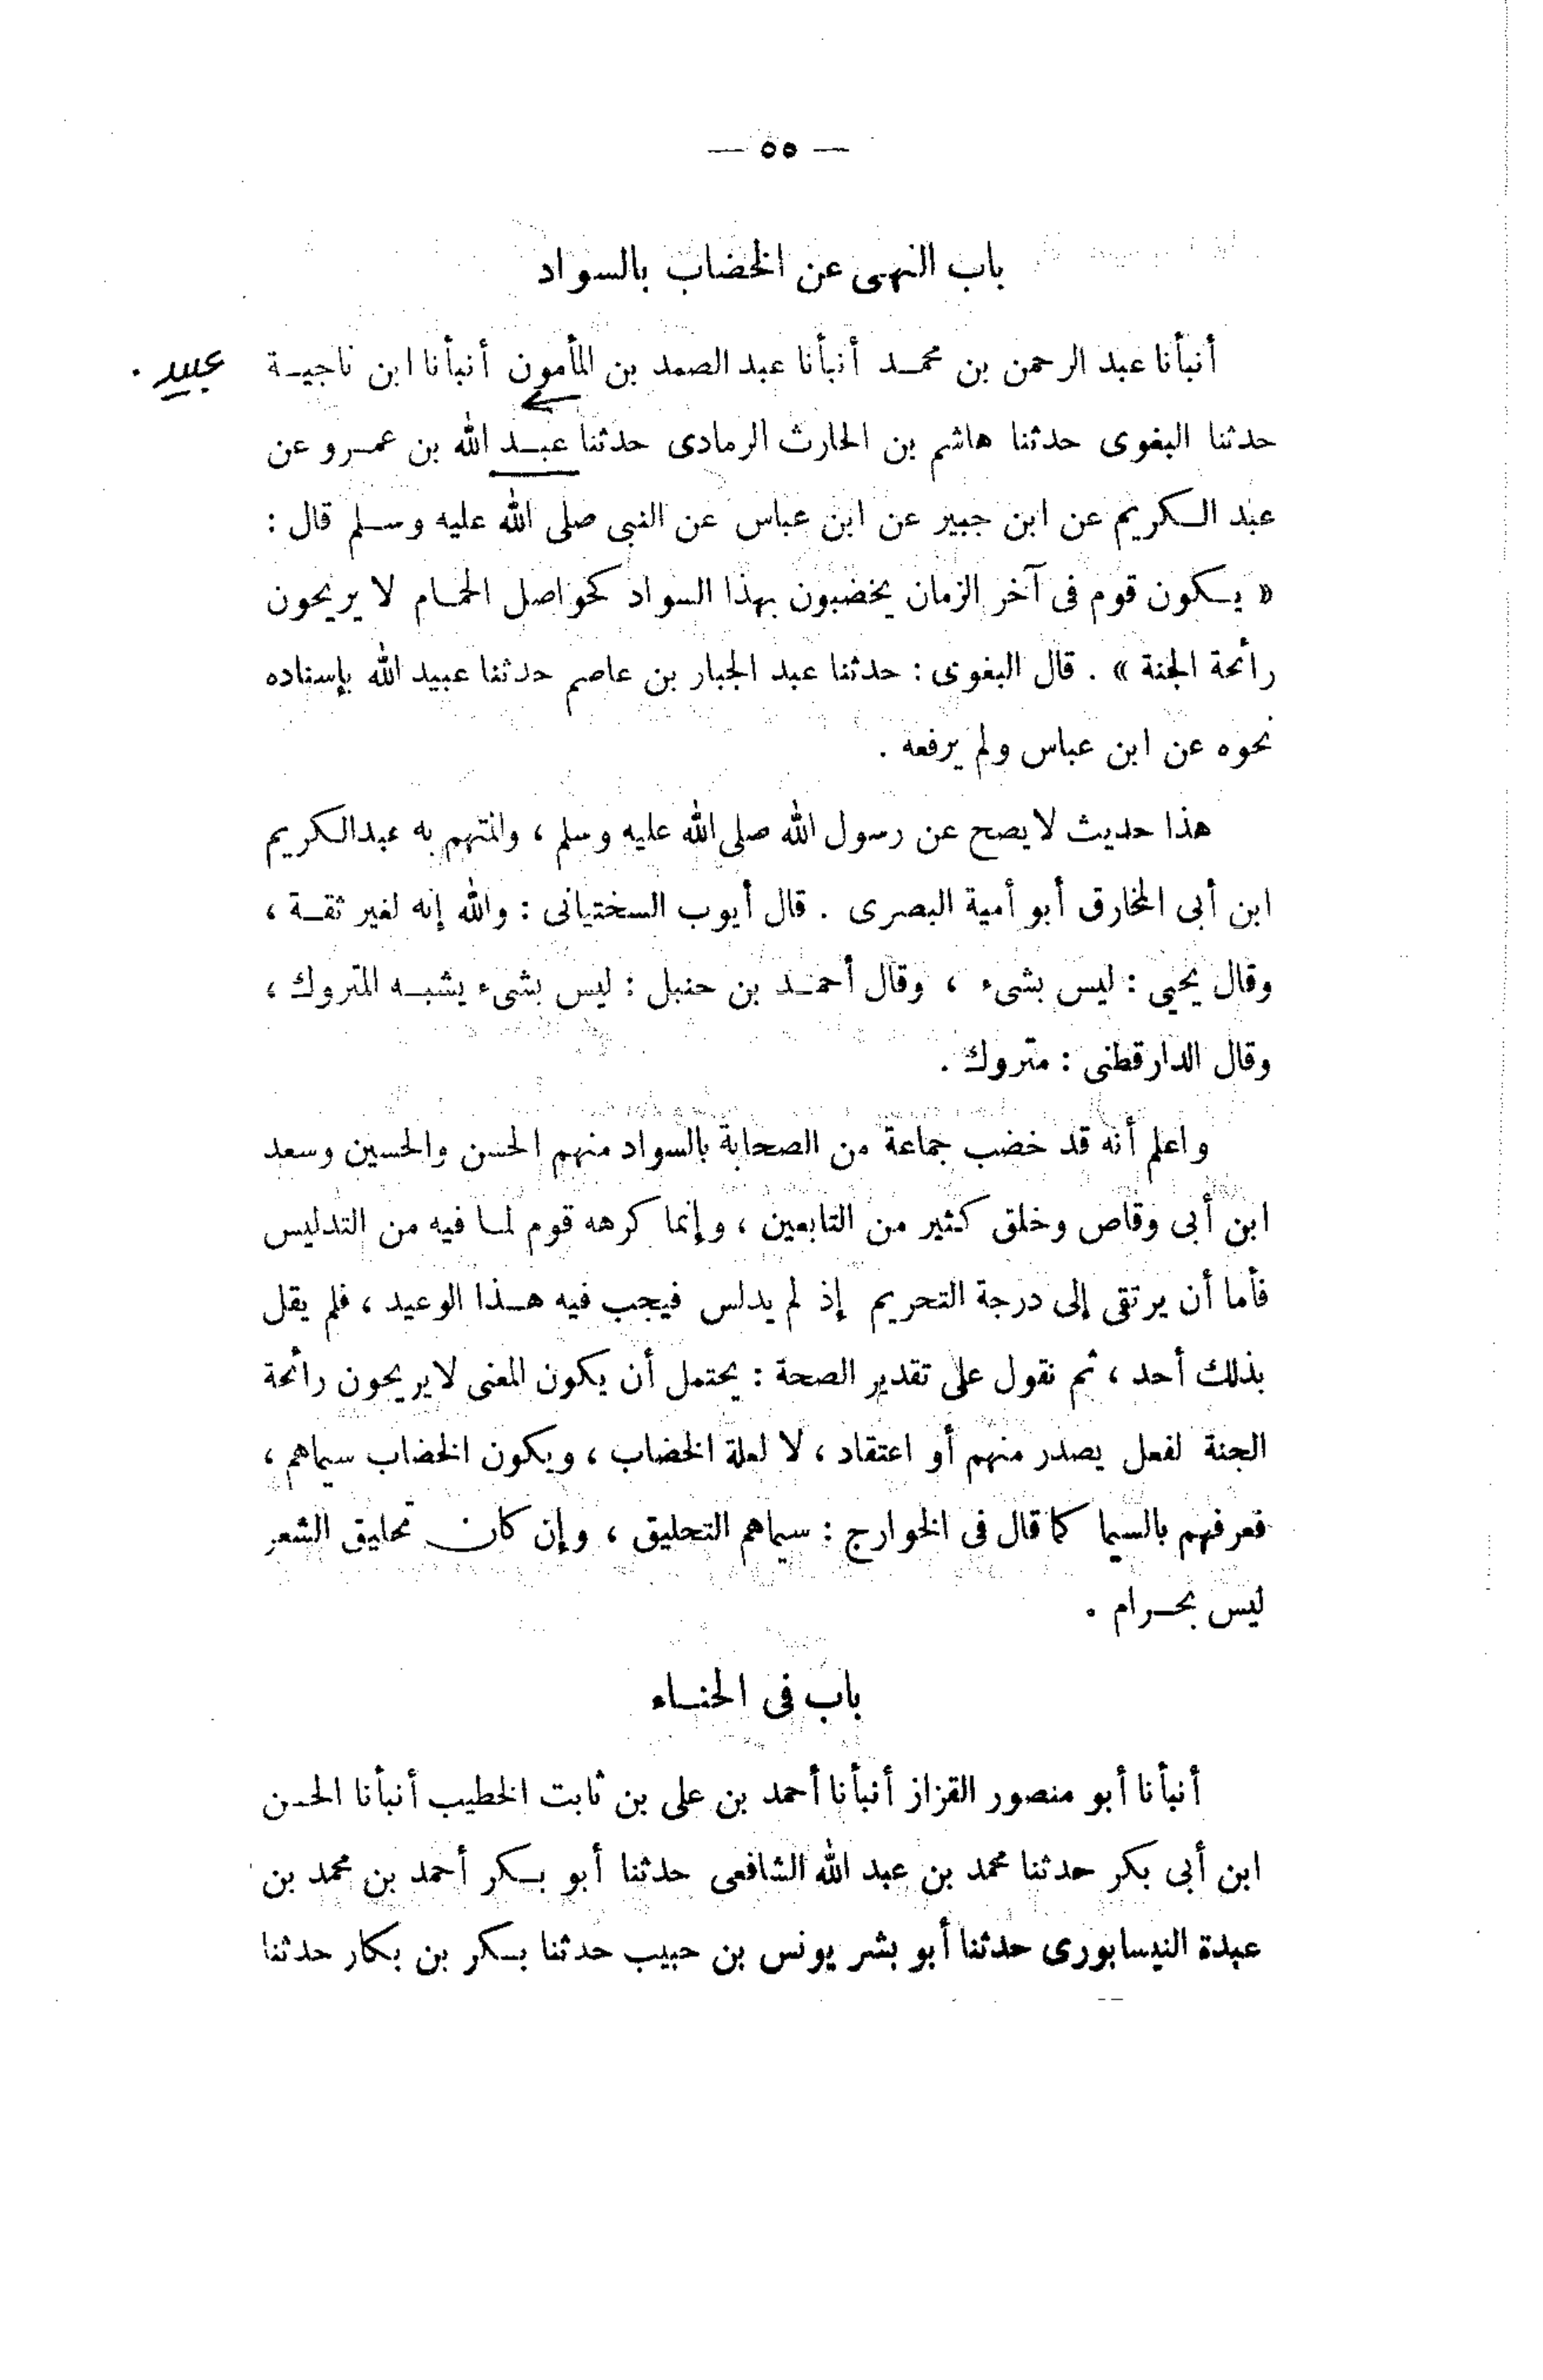 — ٥٥ —
باب النهى عن الخضاب بالسواد
أنبأنا عبد الرحمن بن محمد أنبأنا عبد الصمد بن المأمون أنبأنا ابن ناجية
عبيد .
حدثنا البغوى حدثنا هاشم بن الحارث الرمادى حدثنا عبد الله بن عمرو عن
عبد الكريم عن ابن جبير عن ابن عباس عن النبى صلى الله عليه وسلم قال :
« يكون قوم فى آخر الزمان يخضبون بهذا السواد كحواصل الحمام لا يريحون
رائحة الجنة » . قال البغوى : حدثنا عبد الجبار بن عاصم حدثنا عبيد الله بإسناده
نحوه عن ابن عباس ولم يرفعه .
هذا حديث لا يصح عن رسول الله صلى الله عليه وسلم ، والمتهم به عبدالكريم
ابن أبى المخارق أبو أمية البصرى . قال أيوب السختيانى : والله إنه لغير ثقة ،
وقال يحيى : ليس بشىء ، وقال أحمد بن حنبل : ليس بشىء يشبه المتروك ،
وقال الدارقطنى : متروك .
واعلم أنه قد خضب جماعة من الصحابة بالسواد منهم الحسن والحسين وسعد
ابن أبى وقاص وخلق كثير من التابعين ، وإنما كرهه قوم لما فيه من التدليس
فأما أن يرتقى إلى درجة التحريم إذ لم يدلس فيجب فيه هذا الوعيد ، فلم يقل
بذلك أحد ، ثم نقول على تقدير الصحة : يحتمل أن يكون المعنى لايريحون رائحة
الجنة لفعل يصدر منهم أو اعتقاد ، لا لعلة الخضاب ، ويكون الخضاب سيماهم ،
فعرفهم بالسيما كما قال فى الخوارج : سيماهم التحليق ، وإن كان تحليق الشعر
ليس بحرام .
باب فى الحناء
أنبأنا أبو منصور القزاز أنبأنا أحمد بن على بن ثابت الخطيب أنبأنا الحسن
ابن أبى بكر حدثنا محمد بن عبد الله الشافعى حدثنا أبو بكر أحمد بن محمد بن
عبدة النيسابورى حدثنا أبو بشر يونس بن حبيب حدثنا بكر بن بكار حدثنا